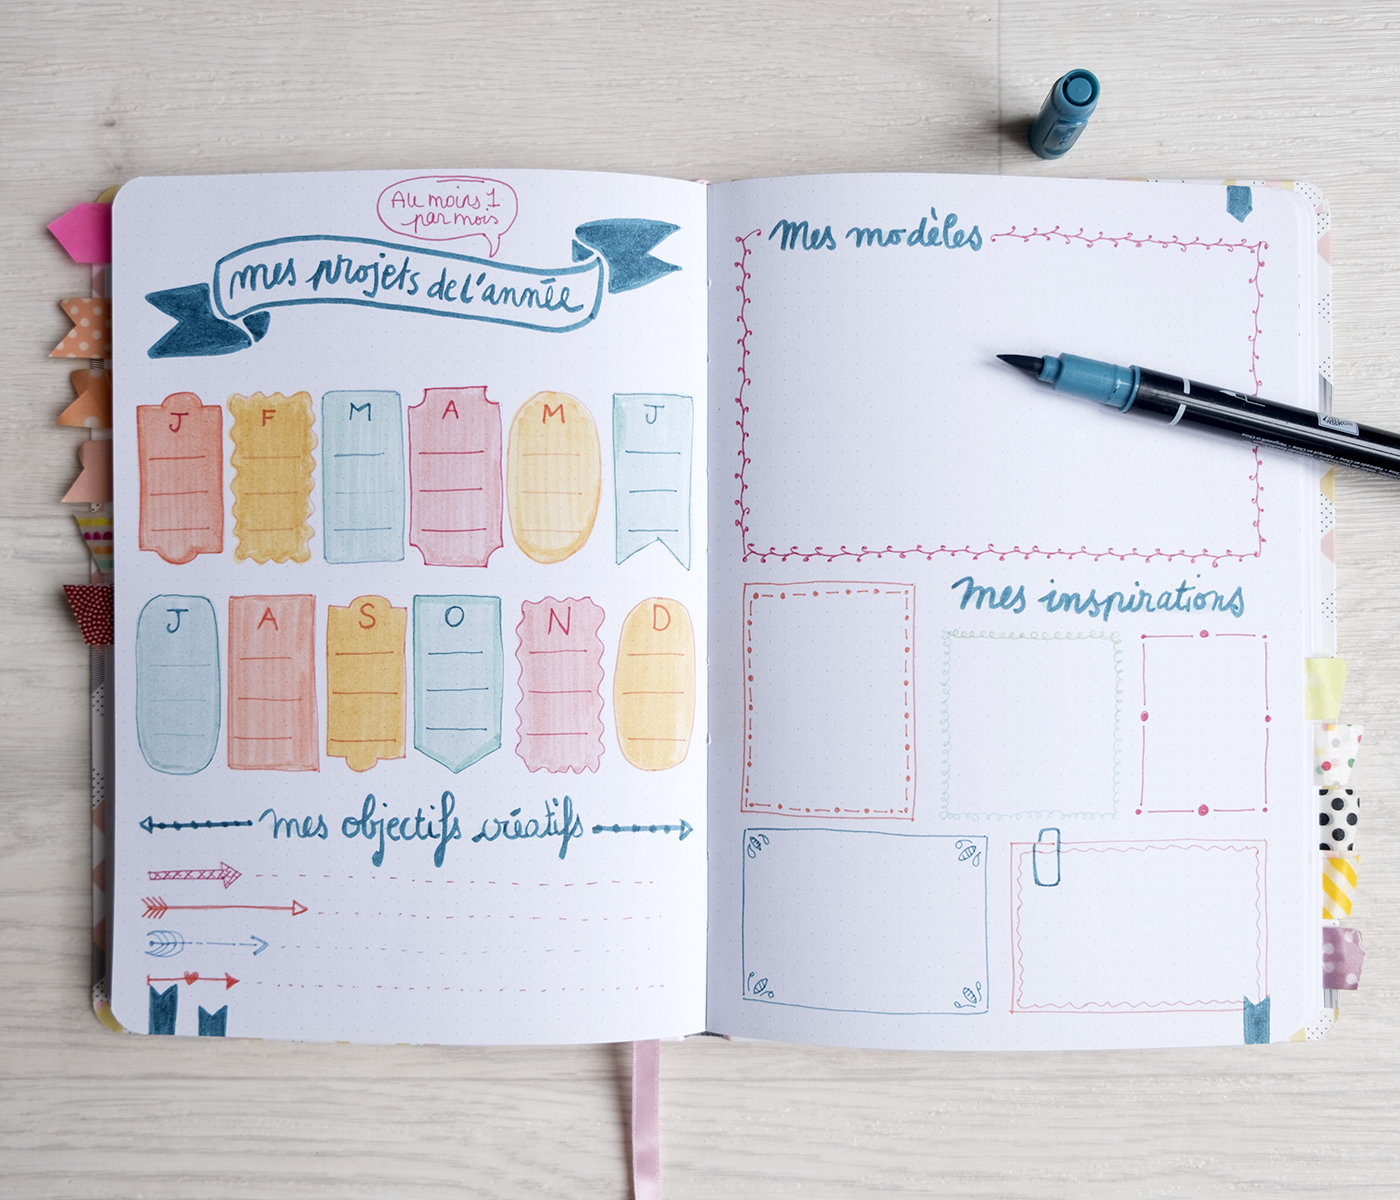 Au moins 1
par mois
mes projets de l'année
J F M A M J
J A S O N D
mes objectifs créatifs
Mes modèles
Mes inspirations